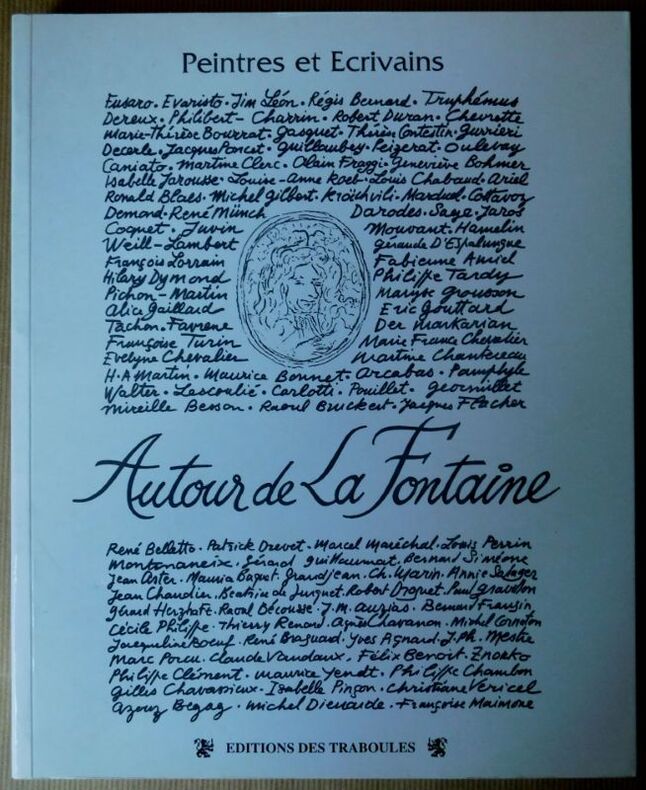 Peintres et Ecrivains
Fusaro. Evaristo. Jim Léon. Régis Bernard. Truphémus
Dereux. Philibert-Charrin. Robert Duran. Chevrette
Marie-Thérèse Bourrat. Gasquet. Thérèse Contestin. Gurrieri
Decerle. Jacques Poncet. Guillaubey. Peizerat. Oulevay
Caniato. Martine Clerc. Alain Fraggi. Geneviève Bohmer
Isabelle Jarousse. Louise-Anne Roet. Louis Chabaud. Ariel
Ronald Blaes. Michel Gilbert. Cottavoz
Demond. René Münch Darodes. Sage. Jaros
Coquet. Juvin Mouvant. Hamelin
Weill-Lambert Géraude D'Espalungue
François Lorrain Fabienne Amiel
Hilary Dymond Philippe Tardy
Pichon-Martin Maryse Grousson
Alice Gaillard Eric Gouttard
Tachon. Favrene Der Markarian
Françoise Turin Marie France Chevalier
Evelyne Chevalier Martine Chantereau
H.A Martin. Maurice Bonnet. Arcabas. Pamphyle
Walter. Lescoulié. Carlotti. Pouillet. Geormillet
Mireille Besson. Raoul Bruckert. Jacques Flacher
Autour de La Fontaine
René Belletto. Patrick Drevet. Marcel Maréchal. Louis Perrin
Montmaneix. Gérard Guillaumat. Bernard Siméone
Jean Aster. Baquet. Grandjean. Ch. Marin. Annie Salager
Jean Chaudier. Béatrice de Jurquet. Robert Droguet. Paul Gravillon
Gérard Herzhaft. Raoul Bécousse. J.M. Auzias. Bernard Frangin
Cécile Philippe. Thierry Renard. Agnès Chavanon. Michel Cornaton
Jacqueline Boeuf. René Braguard. Yves Agnard. J.Ph. Mestre
Marc Porcu. Claude Vandaux. Félix Benoit. Znorko
Philippe Clément. Maurice Yendt. Philippe Chambon
Gilles Chavassieux. Isabelle Pinçon. Christiane Vericel
Azouz Begag. Michel Dieuaide. Françoise Maimone
EDITIONS DES TRABOULES